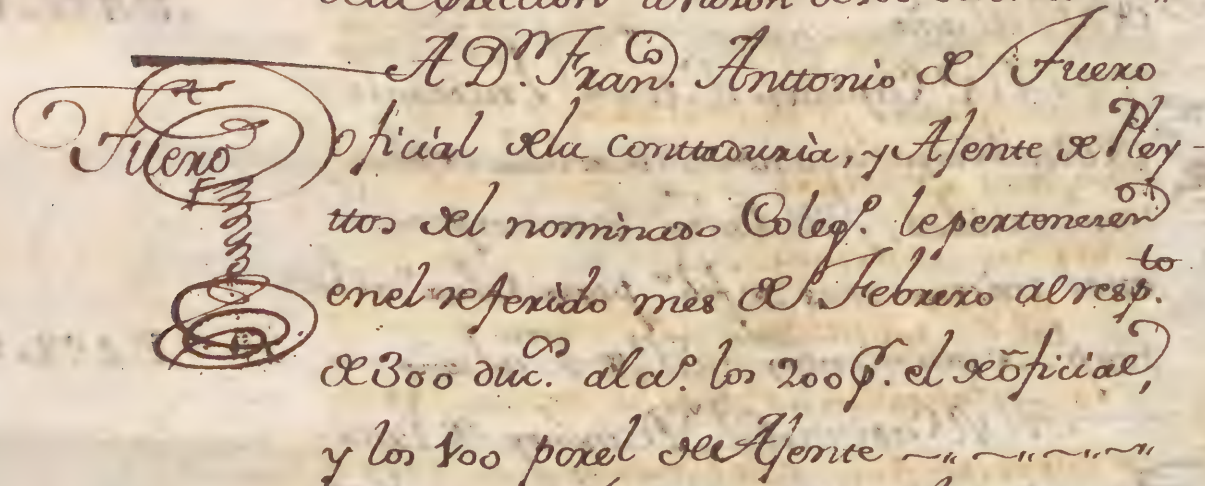 A D.ⁿ Fran.ᶜᵒ Anttonio de Fuero
Fuero
oficial dela conttaduria, y Ajente de Pley-
ttos del nominado Coleg.º lepertenecen
enel referido mes de Febrero alresp.ᵗᵒ
de 300 duc.ˢ al a.º los 200 p.r el de oficial,
y los 100 porel de Ajente